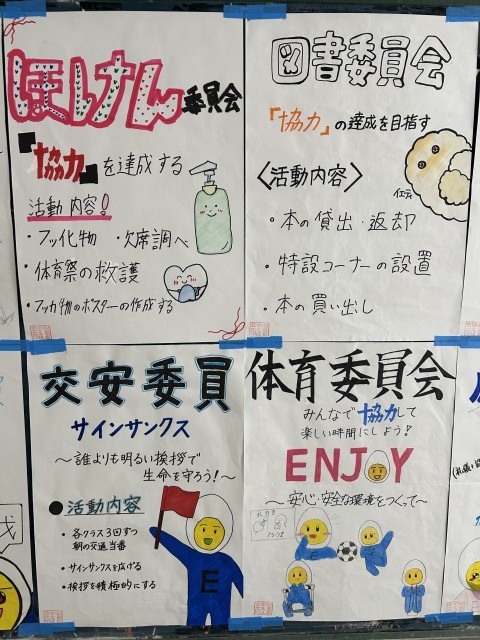 ほけん委員会
『協力』を達成する
活動内容!
・フッ化物 ・欠席調べ
・体育祭の救護
・フッカ物のポスターの作成する
図書委員会
「協力」の達成を目指す
〈活動内容〉
イエティ
・本の貸出・返却
・特設コーナーの設置
・本の買い出し
交安委員
サインサンクス
～誰よりも明るい挨拶で
生命を守ろう!～
●活動内容
・各クラス3回ずつ
朝の交通当番
・サインサンクスを広げる
・挨拶を積極的にする
E
体育委員会
みんなで協力して
楽しい時間にしよう!
ENJOY
～安心・安全な環境をつくって～
E